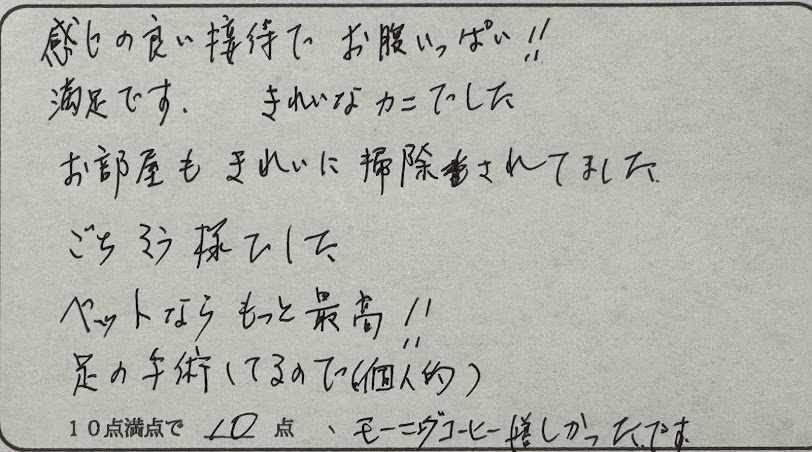 感じの良い接待で お腹いっぱい!!
満足です. きれいなカニでした
お部屋も きれいに 掃除されてました.
ごちそう様でした
ベットなら もっと 最高!!
足の手術してるので(個人的)
10点満点で 10 点 、モーニングコーヒー 嬉しかったです